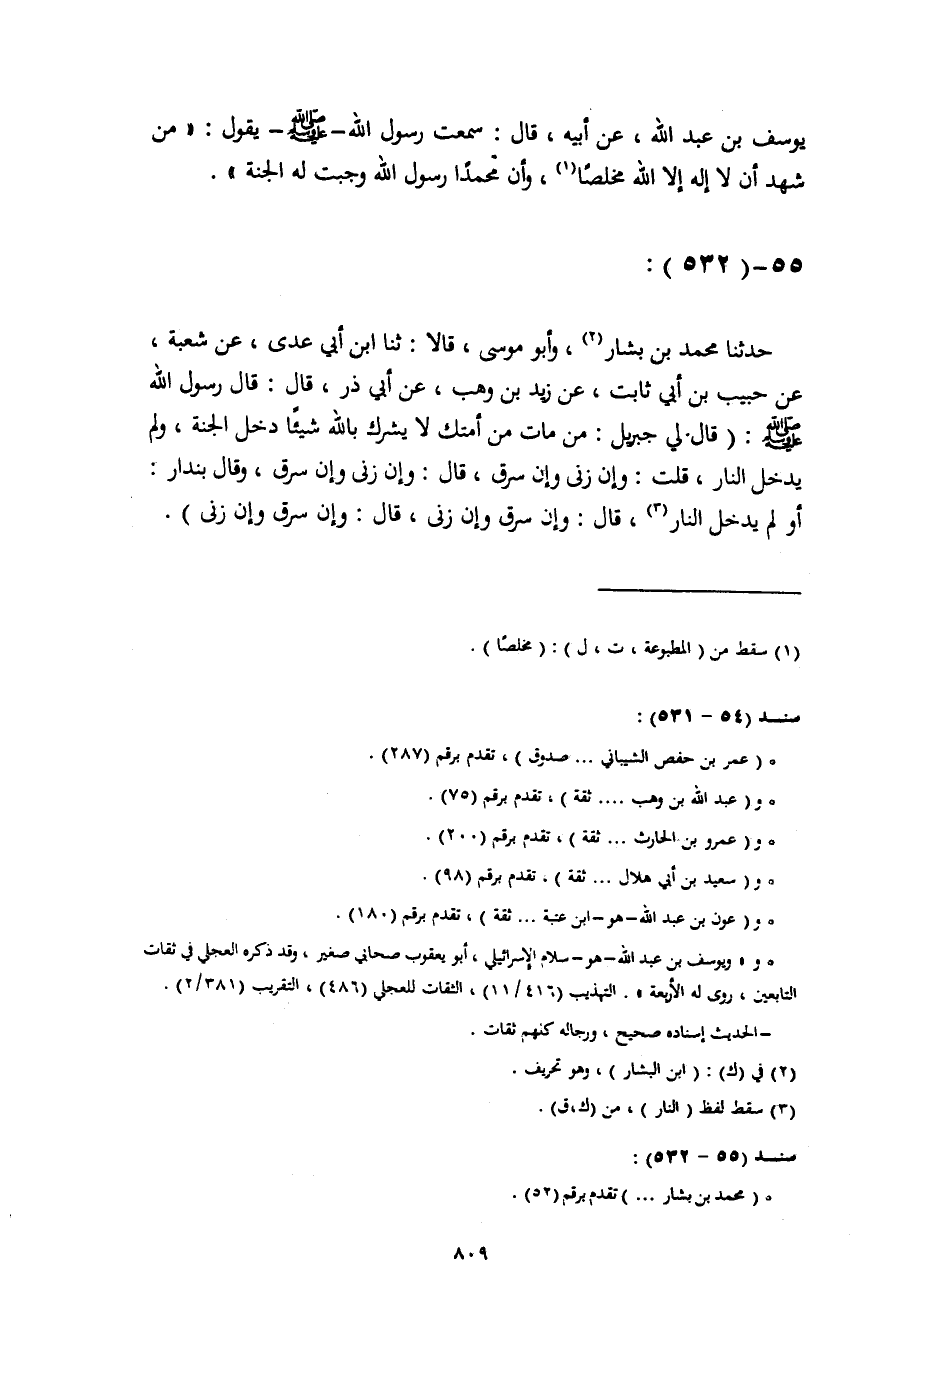 يوسف بن عبد الله ، عن أبيه ، قال : سمعت رسول الله–ﷺ– يقول : « من
شهد أن لا إله إلا الله مخلصًا(١) ، وأن محمدًا رسول الله وجبت له الجنة » .
٥٥–( ٥٣٢ ) :
حدثنا محمد بن بشار(٢) ، وأبو موسى ، قالا : ثنا ابن أبي عدى ، عن شعبة ،
عن حبيب بن أبي ثابت ، عن زيد بن وهب ، عن أبي ذر ، قال : قال رسول الله
ﷺ : ( قال لي جبريل : من مات من أمتك لا يشرك بالله شيئًا دخل الجنة ، ولم
يدخل النار ، قلت : وإن زنى وإن سرق ، قال : وإن زنى وإن سرق ، وقال بندار :
أو لم يدخل النار(٣) ، قال : وإن سرق وإن زنى ، قال : وإن سرق وإن زنى ) .
(١) سقط من ( المطبوعة ، ت ، ل ) : ( مخلصًا ) .
سنـــد (٥٤ – ٥٣١) :
٥ ( عمر بن حفص الشيباني ... صدوق ) ، تقدم برقم (٢٨٧) .
٥ و( عبد الله بن وهب .... ثقة ) ، تقدم برقم (٧٥) .
٥ و( عمرو بن الحارث ... ثقة ) ، تقدم برقم (٢٠٠) .
٥ و( سعيد بن أبي هلال ... ثقة ) ، تقدم برقم (٩٨) .
٥ و( عون بن عبد الله–هو–ابن عتبة ... ثقة ) ، تقدم برقم (١٨٠) .
٥ و « ويوسف بن عبد الله–هو–سلام الإسرائيلي ، أبو يعقوب صحابي صغير ، وقد ذكره العجلي في ثقات
التابعين ، روى له الأربعة » . التهذيب (١١/٤١٦) ، الثقات للعجلي (٤٨٦) ، التقريب (٢/٣٨١) .
–الحديث إسناده صحيح ، ورجاله كلهم ثقات .
(٢) في (ك) : ( ابن البشار ) ، وهو تحريف .
(٣) سقط لفظ ( النار ) ، من (ك،ق) .
سنـــد (٥٥ – ٥٣٢) :
٥ ( محمد بن بشار ... ) تقدم برقم (٥٢) .
٨٠٩